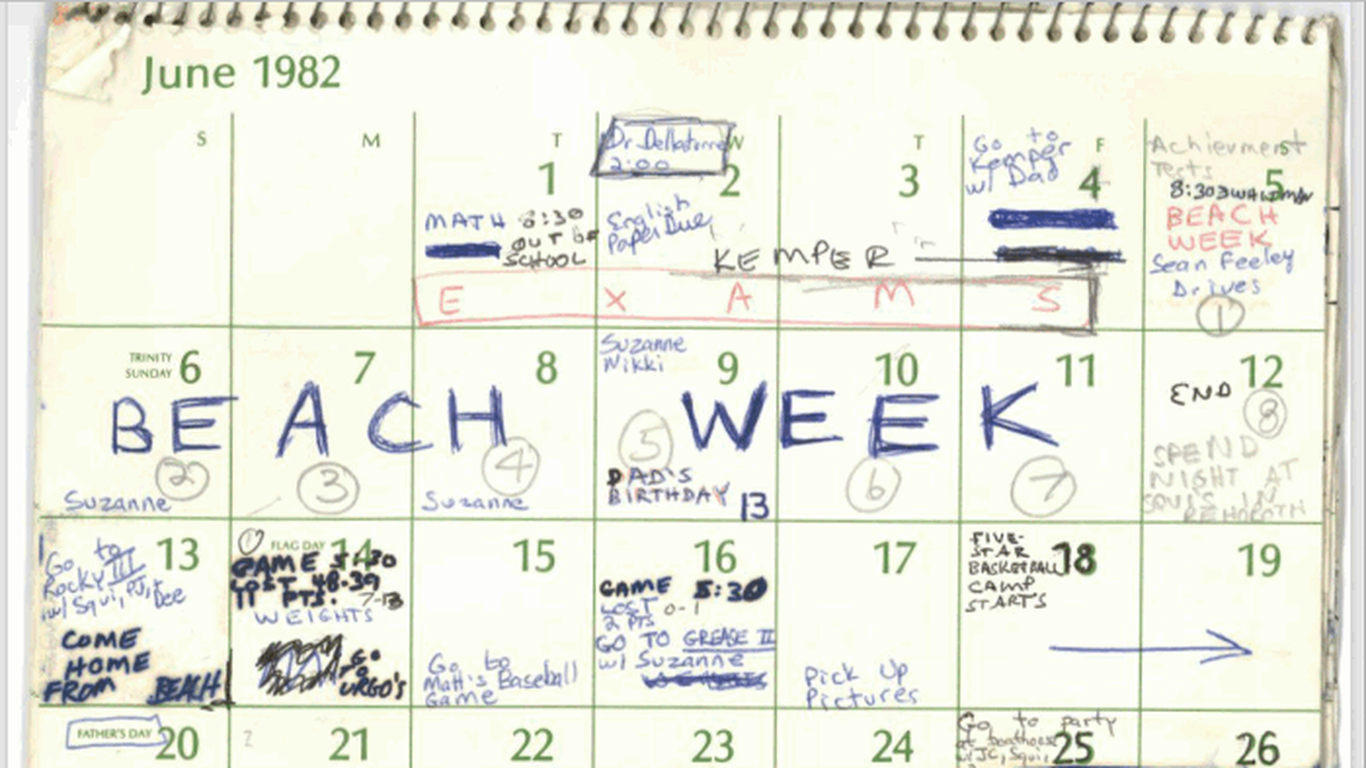 June 1982
S M T W T F S
1
MATH 8:30
OUT OF
SCHOOL
Dr. Dellatorre
2:00
2
English
Paper Due
3
KEMPER
Go to
Kemper
w/ Dad
4
Achievement
Tests
5
8:30
BEACH
WEEK
Sean Feeley
Drives
1
E X A M S
TRINITY
SUNDAY 6
7
8
Suzanne
Nikki
9
10
11
12
END
8
BEACH WEEK
2
Suzanne
3
4
Suzanne
5
DAD'S
BIRTHDAY 13
6
7
SPEND
NIGHT AT
SQUI'S IN
REHOBOTH
13
Go to
Rocky III
w/ Squi, PJ,
COME
HOME
FROM BEACH
FLAG DAY 14
GAME 5:30
LOST 48-39
11 PTS.
WEIGHTS
GO
TO
URGO'S
15
Go to
Matt's Baseball
Game
16
GAME 5:30
LOST 0-1
2 PTS
GO TO GREASE II
w/ Suzanne
17
Pick Up
Pictures
18
FIVE-
STAR
BASKETBALL
CAMP
STARTS
19
FATHER'S DAY 20
21
22
23
24
Go to party
at boathouse
w/ JC, Squi,
25
26